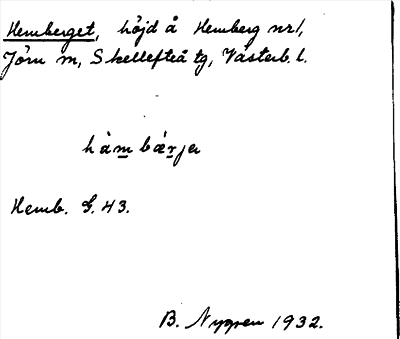 Hemberget, höjd å Hemberg nr 1,
Jörn sn, Skellefteå tg, Västerb. l.
hàm bár̰jer
Hemb. G. 43.
B. Nygren 1932.